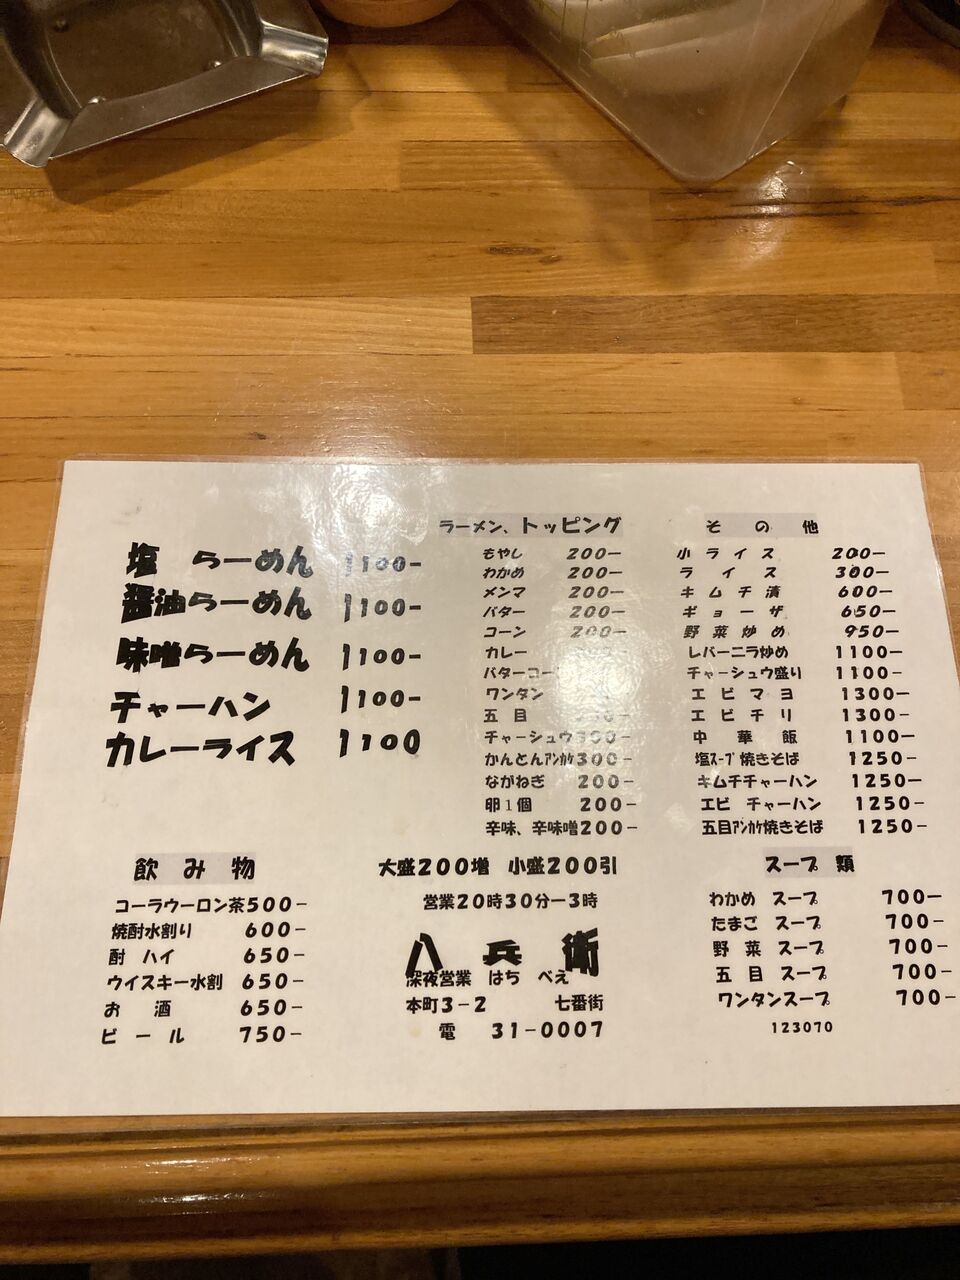 塩 らーめん 1100-
醤油らーめん 1100-
味噌らーめん 1100-
チャーハン 1100-
カレーライス 1100
ラーメン、トッピング
もやし 200-
わかめ 200-
メンマ 200-
バター 200-
コーン 200-
カレー
バターコー
ワンタン
五目
チャーシュウ300-
かんとんアンカケ300-
ながねぎ 200-
卵1個 200-
辛味、辛味噌200-
その他
小ライス 200-
ライス 300-
キムチ漬 600-
ギョーザ 650-
野菜炒め 950-
レバーニラ炒め 1100-
チャーシュウ盛り 1100-
エビマヨ 1300-
エビチリ 1300-
中華飯 1100-
塩スープ焼きそば 1250-
キムチチャーハン 1250-
エビ チャーハン 1250-
五目アンカケ焼きそば 1250-
飲み物
コーラウーロン茶500-
焼酎水割り 600-
酎 ハイ 650-
ウイスキー水割 650-
お酒 650-
ビール 750-
大盛200増 小盛200引
営業20時30分-3時
八兵衛
深夜営業 はち べえ
本町3-2 七番街
電 31-0007
スープ類
わかめ スープ 700-
たまご スープ 700-
野菜 スープ 700-
五目 スープ 700-
ワンタンスープ 700-
123070